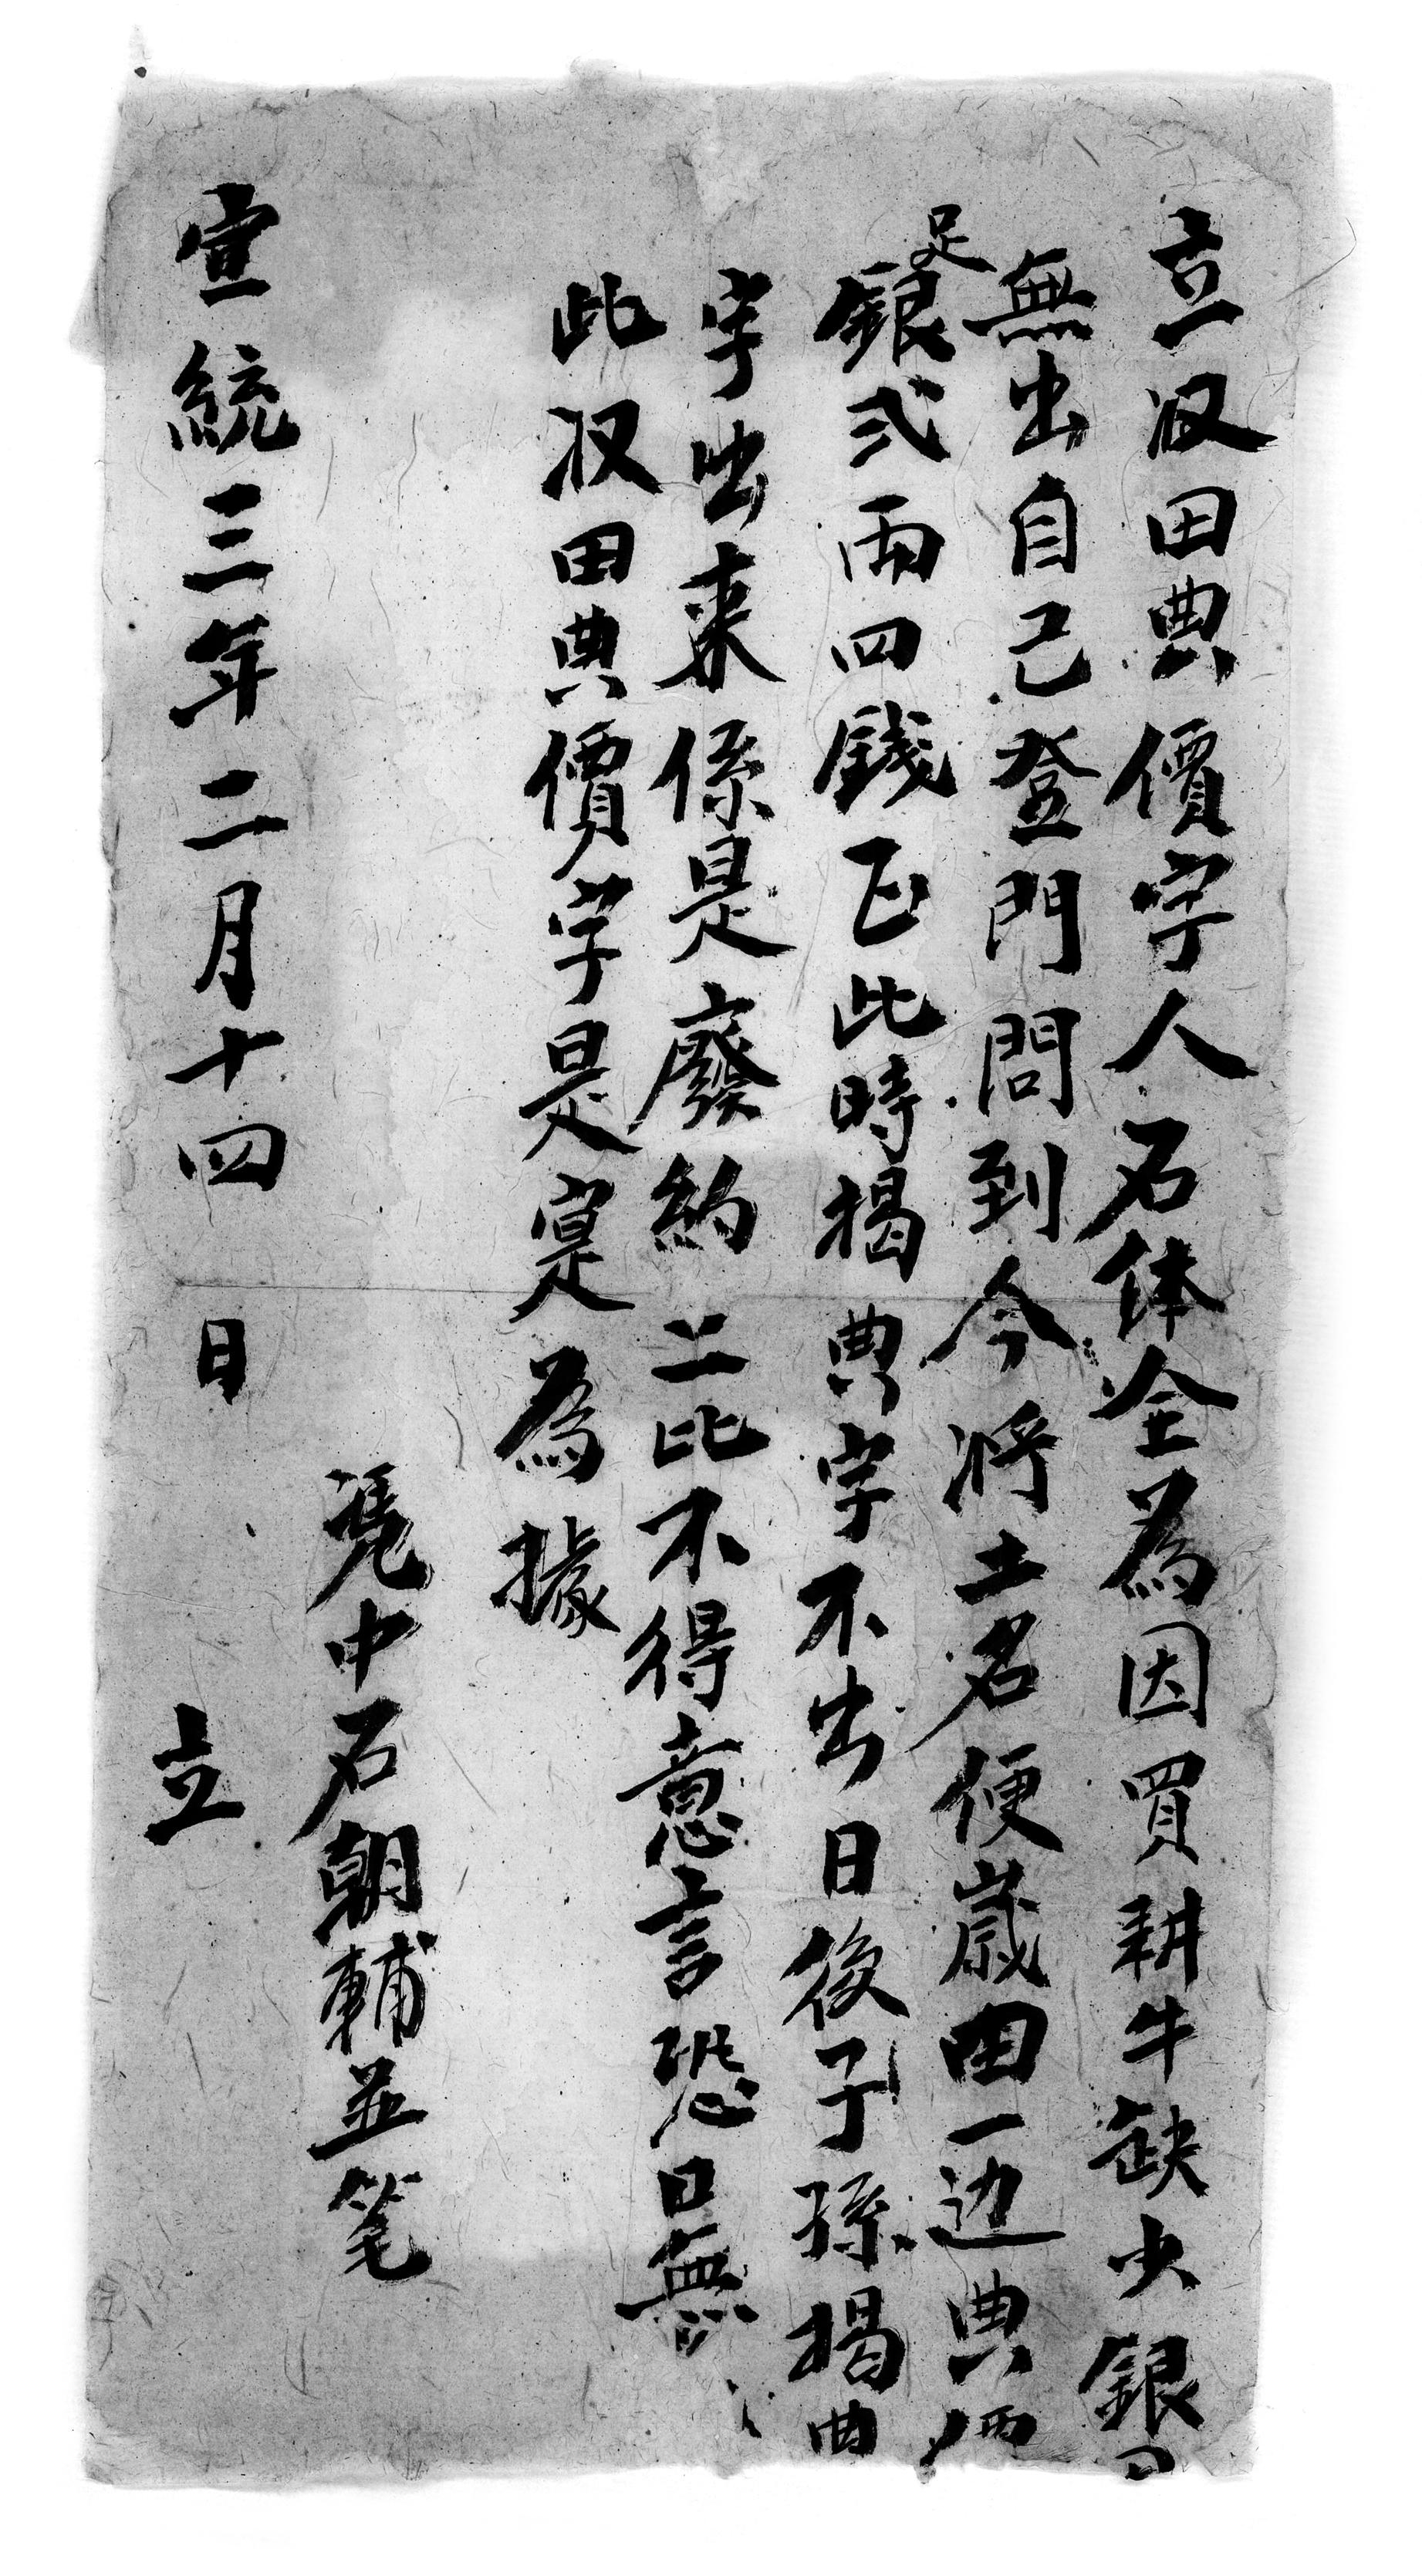 立収田典價字人石体全為因買耕牛缺少銀
無出自己登門問到今將土名便歲田一边典價
足銀弍両四錢正此時揭典字不出日後子孫揭典
字出來係是廢約二比不得意言恐口無
此収田典價字是寔為據
憑中石朝輔並笔
宣統三年二月十四日 立